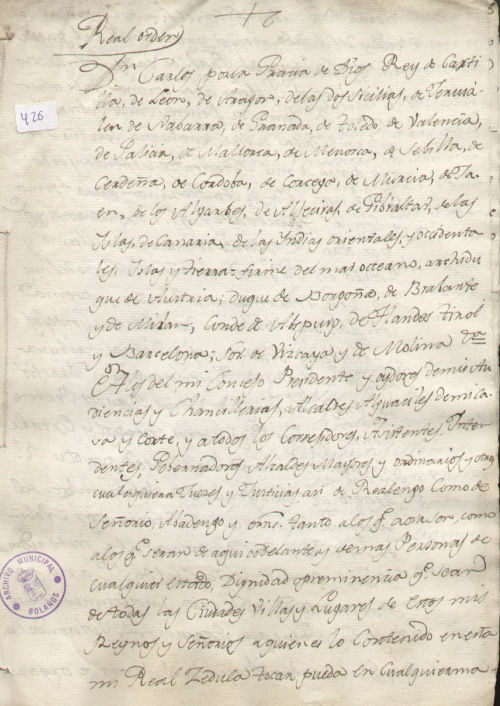 Real orden
Dn Carlos por la Gracia de Dios Rey de Casti
lla, de Leon, de Aragon, de las dos Sicilias, de Jerusa
len de Nabarra, de Granada, de Toledo de Valencia,
de Galicia, de Mallorca, de Menorca, de Sebilla, de
Cerdeña, de Cordoba, de Corcega, de Murcia, de Ja
en, de los Algarbes, de Algeciras, de Gibraltar, de las
Islas, de Canaria, de las Indias orientales, y occidenta
les, Islas y tierra-firme del mar oceano, archidu
que de Austria; duque de Borgoña, de Brabante
y de Milan, Conde de Abspurg, de Flandes Tirol
y Barcelona; Sor de Vizcaya y de Molina &a
A los del mi Consejo Presidente y oydores de mis Au
diencias y Chancillerias, Alcaldes Alguaciles de mi ca
sa y Corte, y a todos los Corregidores, Asistentes Inten
dentes, Gobernadores Alcaldes Mayores y ordinarios y otros
cualesquiera Jueces y Justicias asi de Realengo Como de
Señorio, Abadengo y ordns. tanto a los q. aora son, como
a los q. seran de aqui adelante, y demas Personas de
cualquier estado, Dignidad o preminencia q. sean
de todas las Ciudades Villas y Lugares de estos mis
Reynos y Señorios a quienes lo Contenido en esta
mi Real Zedula tocar, pueda en Cualquier ma
426
ARCHIVO MUNICIPAL
BOLAÑOS